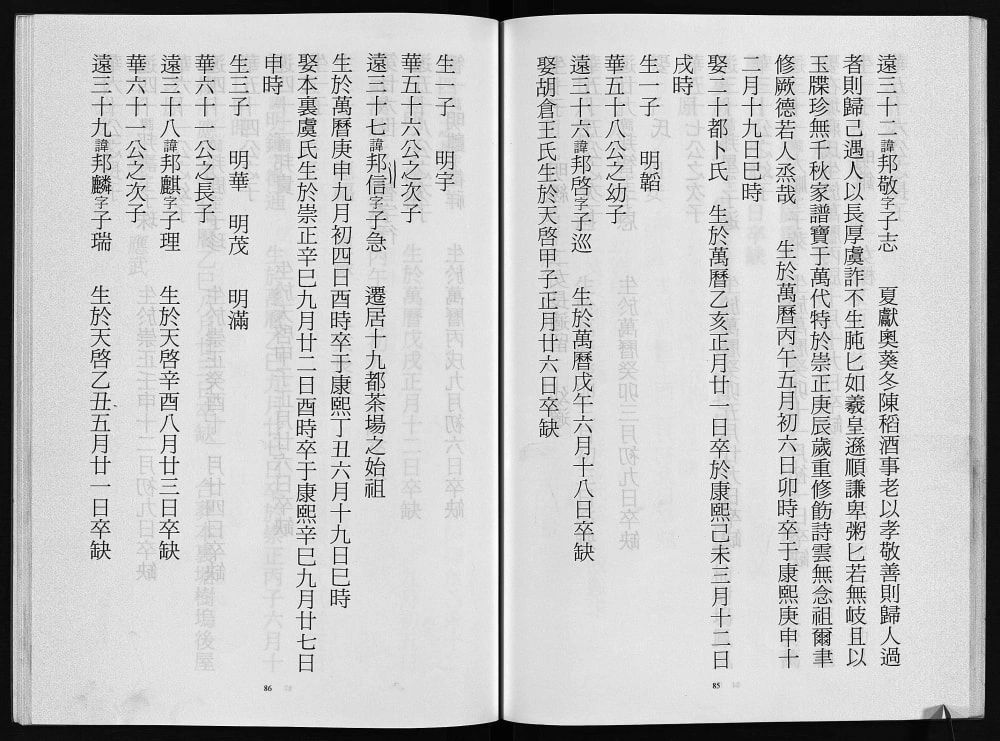 遠三十二諱邦敬字子志 夏獻奧葵冬陳稻酒事老以孝敬善則歸人過
者則歸己遇人以長厚虞詐不生肫匕如羲皇遜順謙卑粥匕若無岐且以
玉牒珍無千秋家譜寶于萬代特於崇正庚辰歲重修飭詩雲無念祖爾聿
修厥德若人烝哉 生於萬曆丙午五月初六日卯時卒于康熙庚申十
二月十九日巳時
娶二十都卜氏 生於萬曆乙亥正月廿一日卒於康熙己未三月十二日
戌時
生一子 明韜
華五十八公之幼子
遠三十六諱邦啓字子巡 生於萬曆戊午六月十八日卒缺
娶胡倉王氏生於天啓甲子正月廿六日卒缺
85
生一子 明宇
華五十六公之次子
遠三十七諱邦信字子急 遷居十九都茶場之始祖
生於萬曆庚申九月初四日酉時卒于康熙丁丑六月十九日巳時
娶本裏虞氏生於崇正辛巳九月廿二日酉時卒于康熙辛巳九月廿七日
申時
生三子 明華 明茂 明滿
華六十一公之長子
遠三十八諱邦麒字子理 生於天啓辛酉八月廿三日卒缺
華六十一公之次子
遠三十九諱邦麟字子瑞 生於天啓乙丑五月廿一日卒缺
86